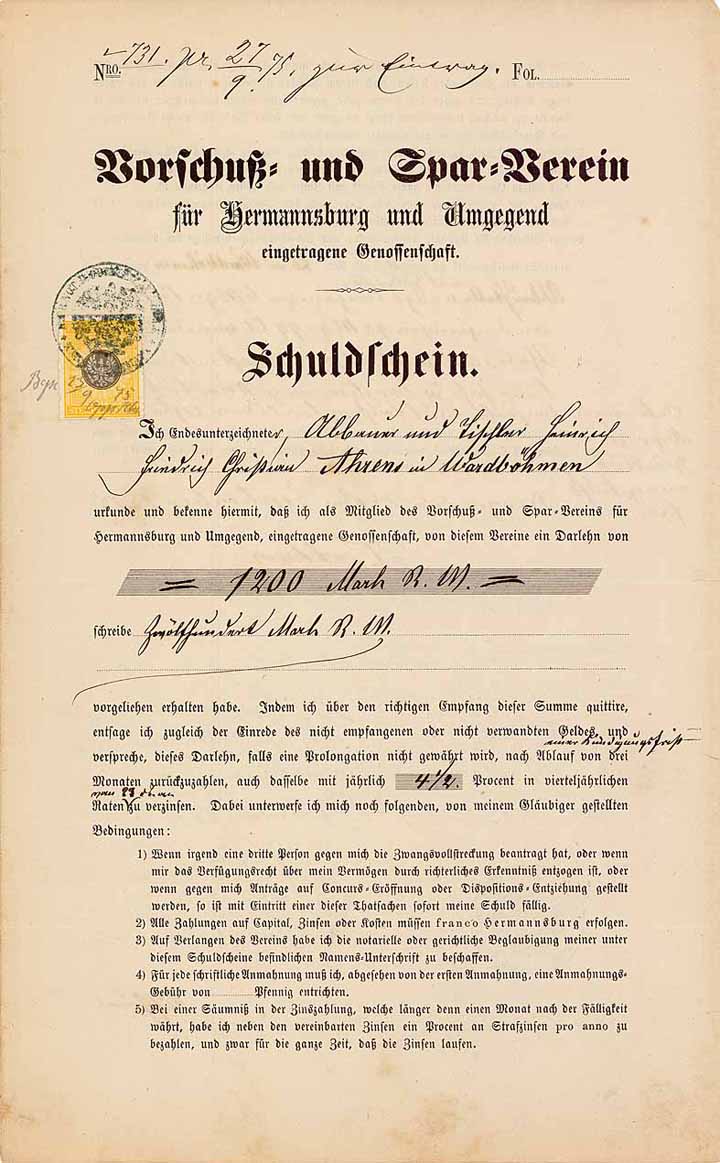 NRO. 731. pr. 27/9. 75. zur Eintrag. FOL.
Vorschuß- und Spar-Verein
für Hermannsburg und Umgegend
eingetragene Genossenschaft.
Schuldschein.
27/9 75
Ich Endesunterzeichneter, Abbauer und Tischler Heinrich
Friedrich Christian Ahrens in Wardböhmen
urkunde und bekenne hiermit, daß ich als Mitglied des Vorschuß- und Spar-Vereins für
Hermannsburg und Umgegend, eingetragene Genossenschaft, von diesem Vereine ein Darlehn von
= 1200 Mark R. W. =
schreibe Zwölfhundert Mark R. W.
vorgeliehen erhalten habe. Indem ich über den richtigen Empfang dieser Summe quittire,
entsage ich zugleich der Einrede des nicht empfangenen oder nicht verwandten Geldes, und
einer Kündigungsfrist
verspreche, dieses Darlehn, falls eine Prolongation nicht gewährt wird, nach Ablauf von drei
Monaten zurückzuzahlen, auch dasselbe mit jährlich 4 1/2. Procent in vierteljährlichen
Raten zu verzinsen. Dabei unterwerfe ich mich noch folgenden, von meinem Gläubiger gestellten
Bedingungen:
1) Wenn irgend eine dritte Person gegen mich die Zwangsvollstreckung beantragt hat, oder wenn
mir das Verfügungsrecht über mein Vermögen durch richterliches Erkenntniß entzogen ist, oder
wenn gegen mich Anträge auf Concurs-Eröffnung oder Dispositions-Entziehung gestellt
werden, so ist mit Eintritt einer dieser Thatsachen sofort meine Schuld fällig.
2) Alle Zahlungen auf Capital, Zinsen oder Kosten müssen franco Hermannsburg erfolgen.
3) Auf Verlangen des Vereins habe ich die notarielle oder gerichtliche Beglaubigung meiner unter
diesem Schuldscheine befindlichen Namens-Unterschrift zu beschaffen.
4) Für jede schriftliche Anmahnung muß ich, abgesehen von der ersten Anmahnung, eine Anmahnungs-
Gebühr von Pfennig entrichten.
5) Bei einer Säumniß in der Zinszahlung, welche länger denn einen Monat nach der Fälligkeit
währt, habe ich neben den vereinbarten Zinsen ein Procent an Strafzinsen pro anno zu
bezahlen, und zwar für die ganze Zeit, daß die Zinsen laufen.